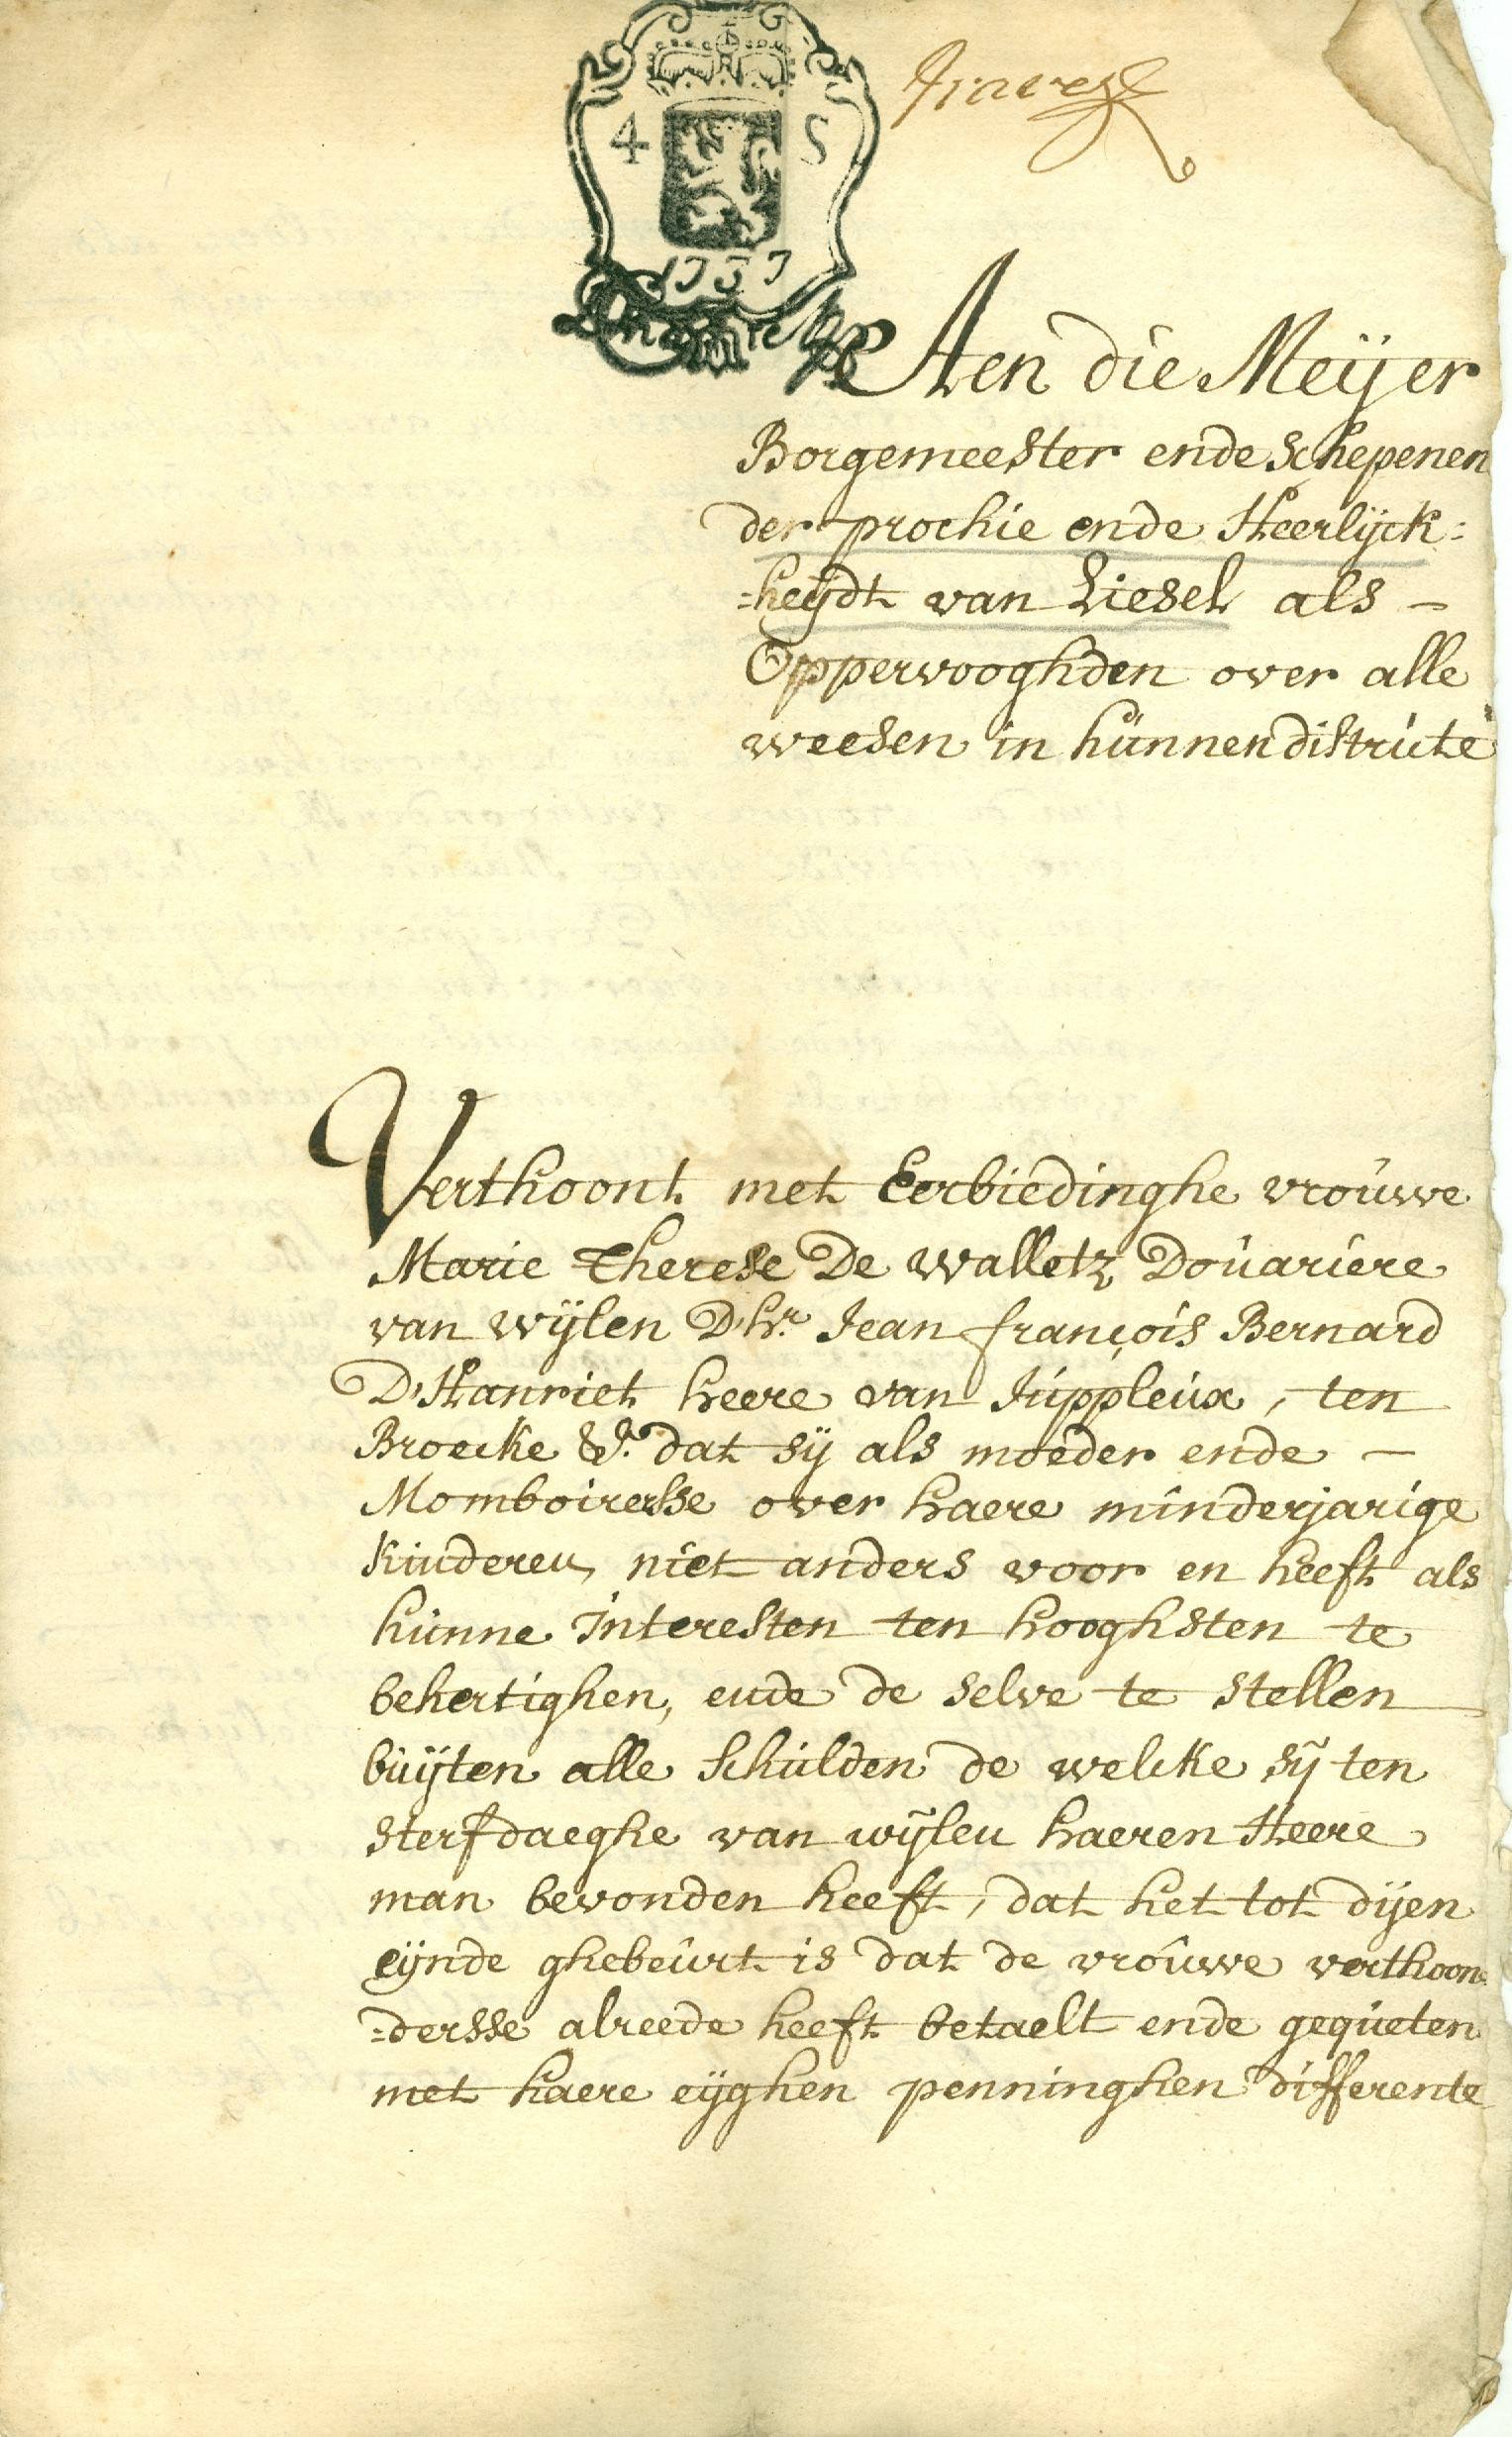 4 S
1757
Aen die Meijer
Borgemeester ende Schepenen
der prochie ende Heerlijck=
=heijdt van Liesel als -
Oppervooghden over alle
weesen in hunnen districte
Verthoont met Eerbiedinghe vrouwe
Marie Therese De Walletz Douariere
van wijlen D'hr. Jean françois Bernard
D'Hanriet heere van Juppleux, ten
Broecke &a. dat sij als moeder ende -
Momboiresse over haere minderjarige
kinderen niet anders voor en heeft als
hunne Interesten ten hooghsten te
behertighen, ende de selve te stellen
buijten alle Schulden de welcke sij ten
sterfdaeghe van wijlen haeren Heere
man bevonden heeft, dat het tot dijen
eijnde ghebeurt is dat de vrouwe verthoon=
=dersse alreede heeft betaelt ende gequeten
met haere eijghen penninghen differente